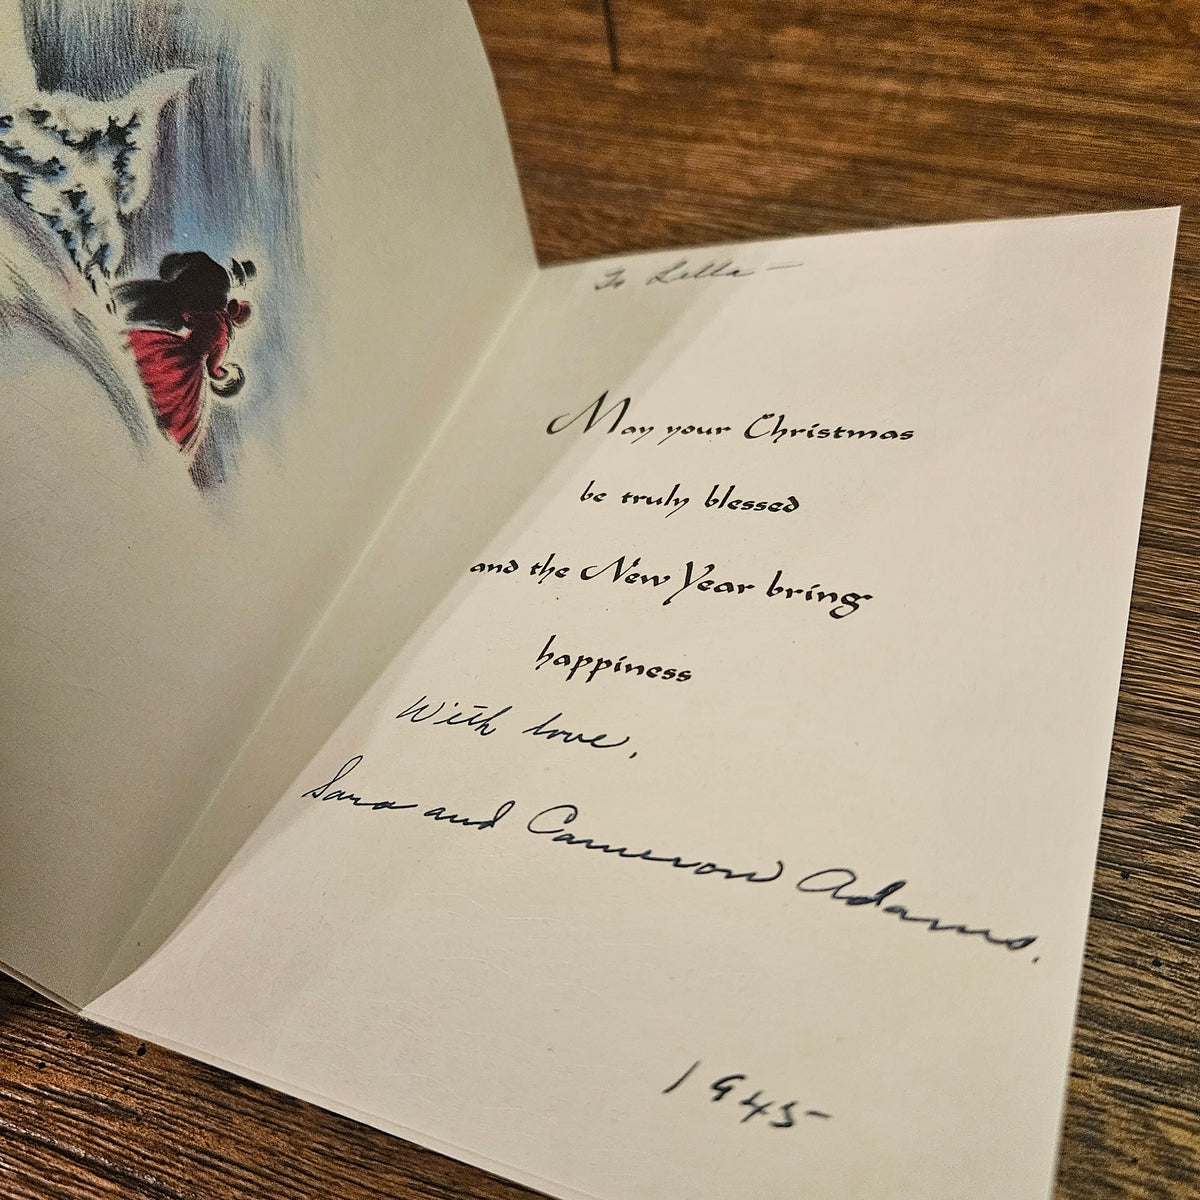 To Lella —
May your Christmas
be truly blessed
and the New Year bring
happiness
With love,
Sara and Cameron Adams.
1945